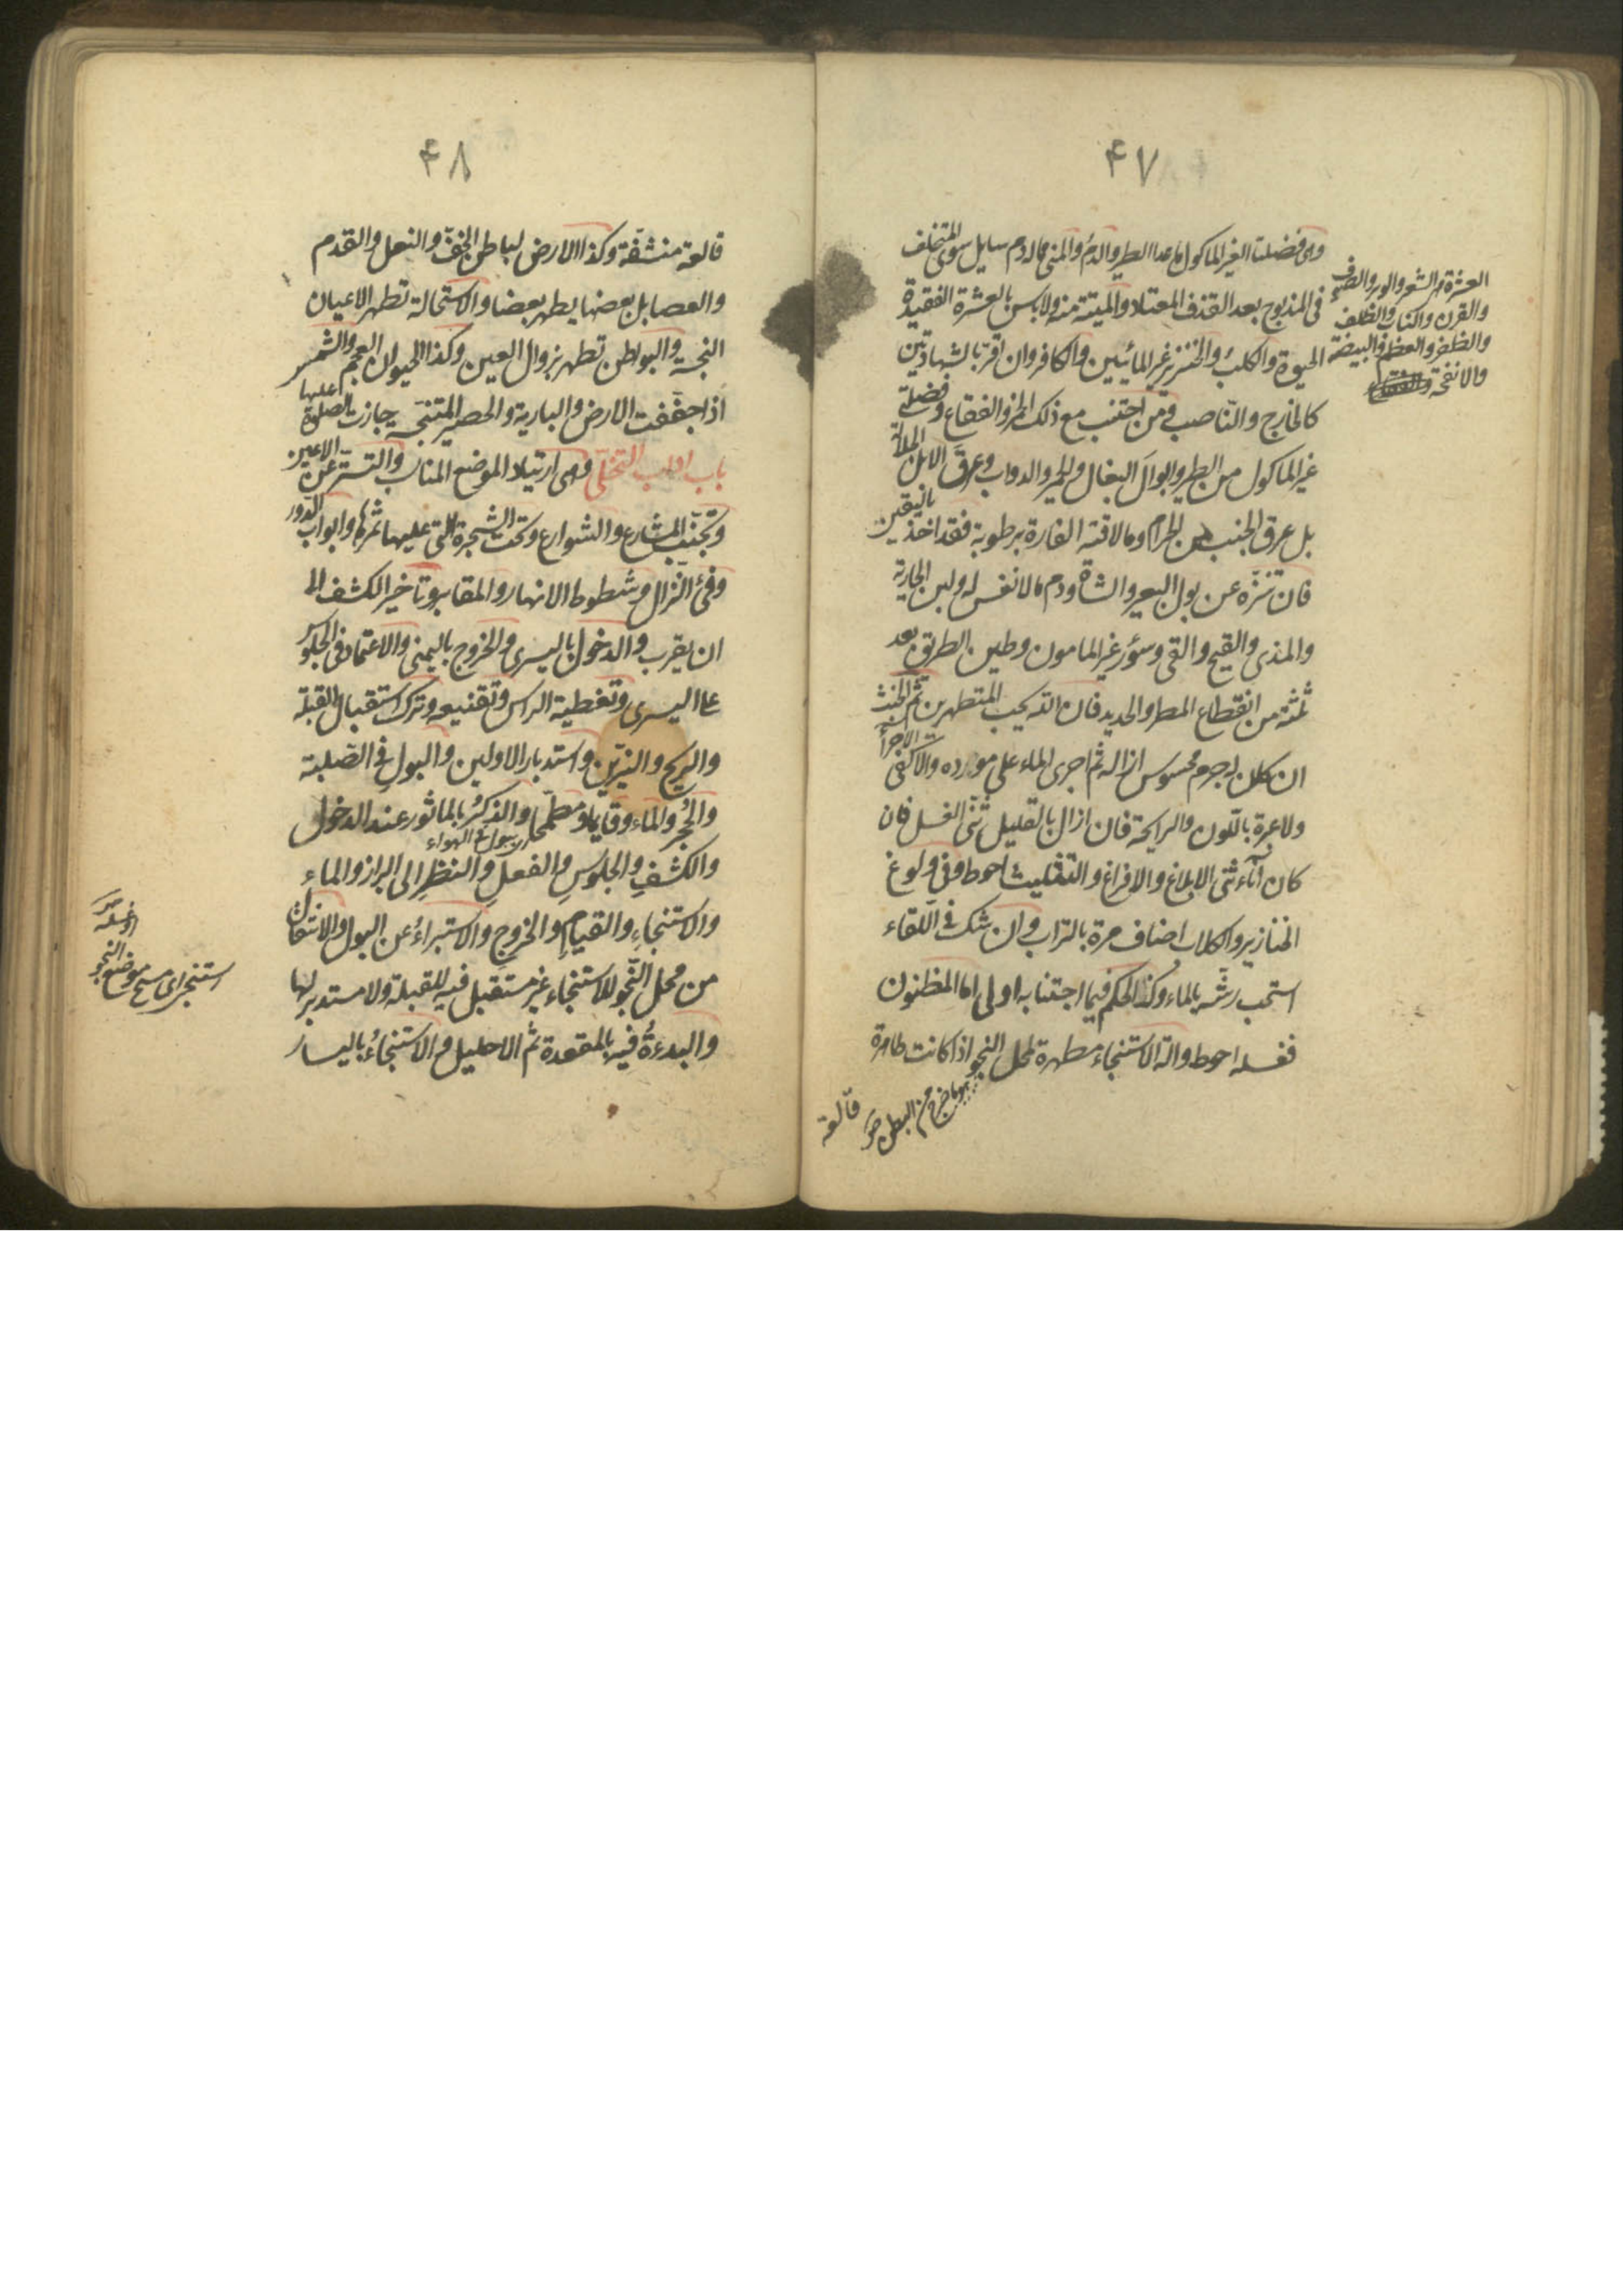 ٤٧
وهى فضلتا الغير الماكول ما عدا الطير والدم والمنى مما له دم سايل سوى المتخلف
فى المذبوح بعد القذف المعتاد والميتة منه ولا باس بالعشرة الفقيدة
الحيوة والكلب والخنزير غير المائيين والكافر وان اقر بالشهادتين
كالخارج والناصب ومن اجتنب مع ذلك الخمر والفقاع وفضلتى
غير الماكول من الطير وابوال البغال والحمير والدواب وعرق الابل الجلالة
بل عرق الجنب من الحرام وما لاقته الفارة برطوبة فقد اخذ باليقين
فان تنزه عن بول البعير والشاة ودم ما لا نفس له ولبن الجارية
والمذى والقيح والقى وسؤر غير المامون وطين الطريق بعد
ثلثة من انقطاع المطر والحديد فان الله يحب المتطهرين ثم الخبث
ان كان له جرم محسوس ازاله ثم اجرى الماء على مورده والا كفى الاجراء
ولا عبرة باللون والرايحة فان ازال بالقليل ثنى الغسل فان
كان اناء ثنى الابلاغ والافراغ والتثليث احوط وفى ولوغ
الخنازير والكلاب اضاف مرة بالتراب وان شك فى اللقاء
استحب رشه بالماء وكذا الحكم فيما اجتنابه اولى اما المظنون
فغسله احوط والة الاستنجاء مطهرة لمحل النجو اذا كانت طاهرة
قالعة
العشرة هى الشعر والوبر والصوف
والقرن والناب والظلف
والظفر والعظم والبيضة
والانفحة
هو ما خرج من البطن
٤٨
قالعة منشفة وكذا الارض لباطن الخف والنعل والقدم
والعصا بل بعضها يطهر بعضا والاستحالة تطهر الاعيان
النجسة والبواطن تطهر بزوال العين وكذا الحيوان العجم والشمس
اذا جففت الارض والبارية والحصير المتنجسه جازت الصلوة عليها
باب اداب التخلى وهى ارتياد الموضع المناسب والتستر عن الاعين
وتجنب المشارع والشوارع وتحت الشجرة التى عليها ثمرها وابواب الدور
وفىء النزال وشطوط الانهار والمقابر وتاخير الكشف الى
ان يقرب والدخول باليسرى والخروج باليمنى والاعتماد فى الجلوس
على اليسرى وتغطية الراس وتقنيعه وترك استقبال القبلة
والريح والنيرين واستدبار الاولين والبول فى الصلبة
والجحر والماء وقايما ومطمحا والذكر بالماثور عند الدخول
بول فى الهواء
والكشف والجلوس والفعل والنظر الى البراز والماء
والاستنجاء والقيام والخروج والاستبراء عن البول والانتقال
من محل النجو للاستنجاء غير مستقبل فيه للقبلة ولا مستدبر لها
والبدءة فيه بالمقعدة ثم الاحليل والاستنجاء باليسار
استنجى اى مسح موضع النجو
او غسله